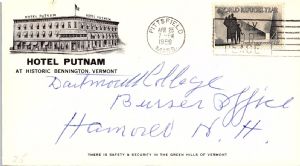 HOTEL PUTNAM
HOTEL PUTNAM
AT HISTORIC BENNINGTON, VERMONT
PITTSFIELD
APR 28
1960
MASS.
WORLD REFUGEE YEAR
PEACE
Dartmouth College
Burser Office
Hanover N. H.
THERE IS SAFETY & SECURITY IN THE GREEN HILLS OF VERMONT